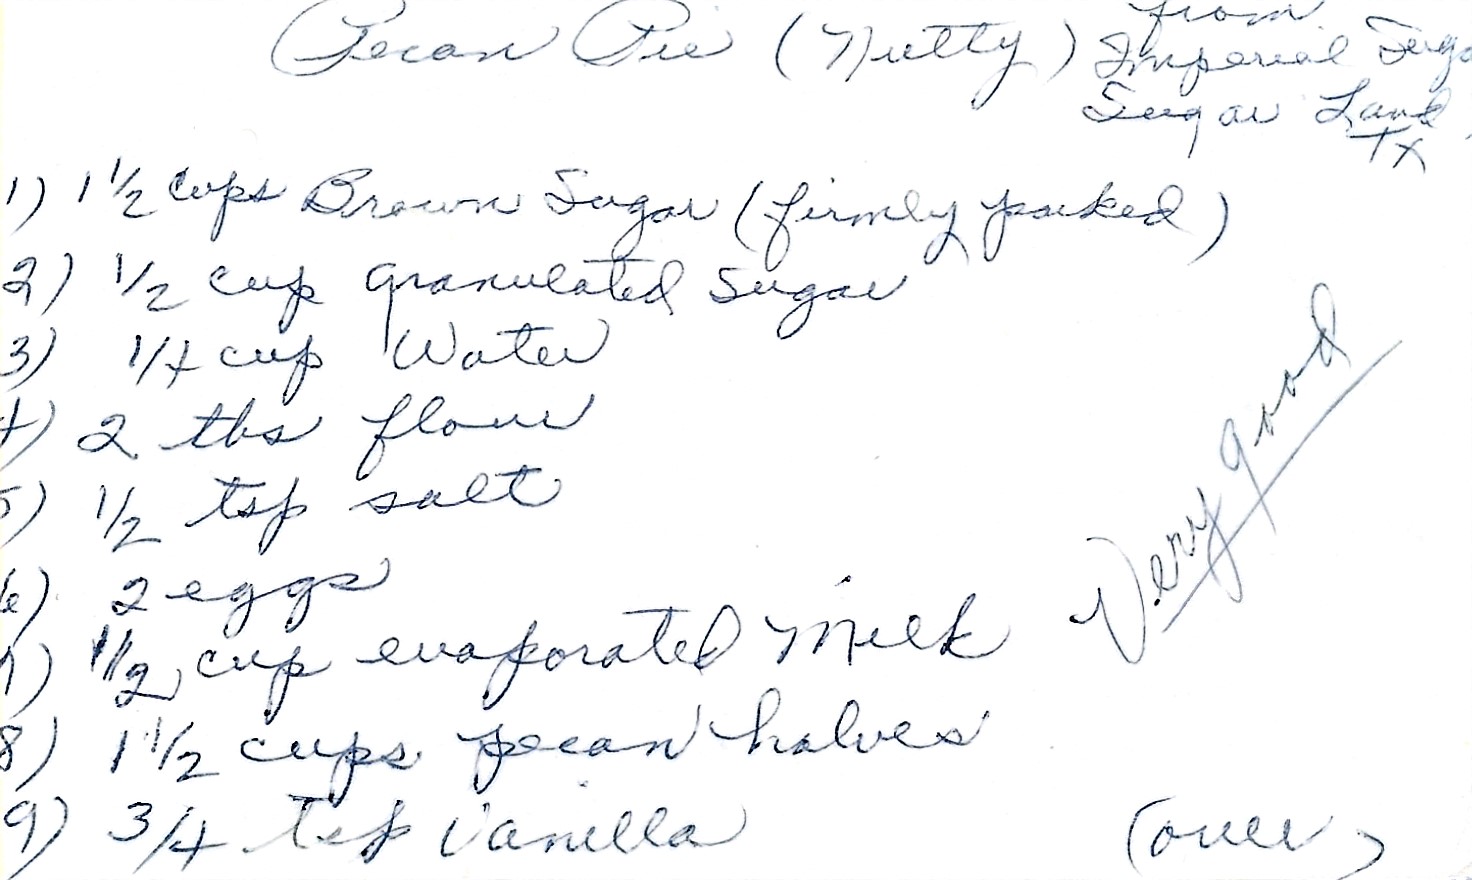 Pecan Pie (Nutty) from
Imperial Suga
Sugar Land,
TX
1) 1 1/2 cups Brown Sugar (firmly packed)
2) 1/2 cup granulated Sugar
3) 1/4 cup Water
4) 2 tbs flour
5) 1/2 tsp salt
6) 2 eggs
7) 1/2 cup evaporated Milk
8) 1 1/2 cups pecan halves
9) 3/4 tsp Vanilla
Very good
(over)